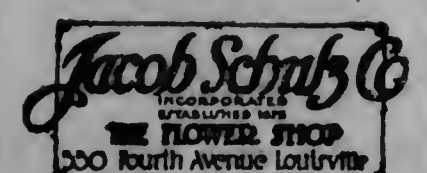 Jacob Schulz Co
INCORPORATED
ESTABLISHED 1873
THE FLOWER SHOP
550 Fourth Avenue Louisville